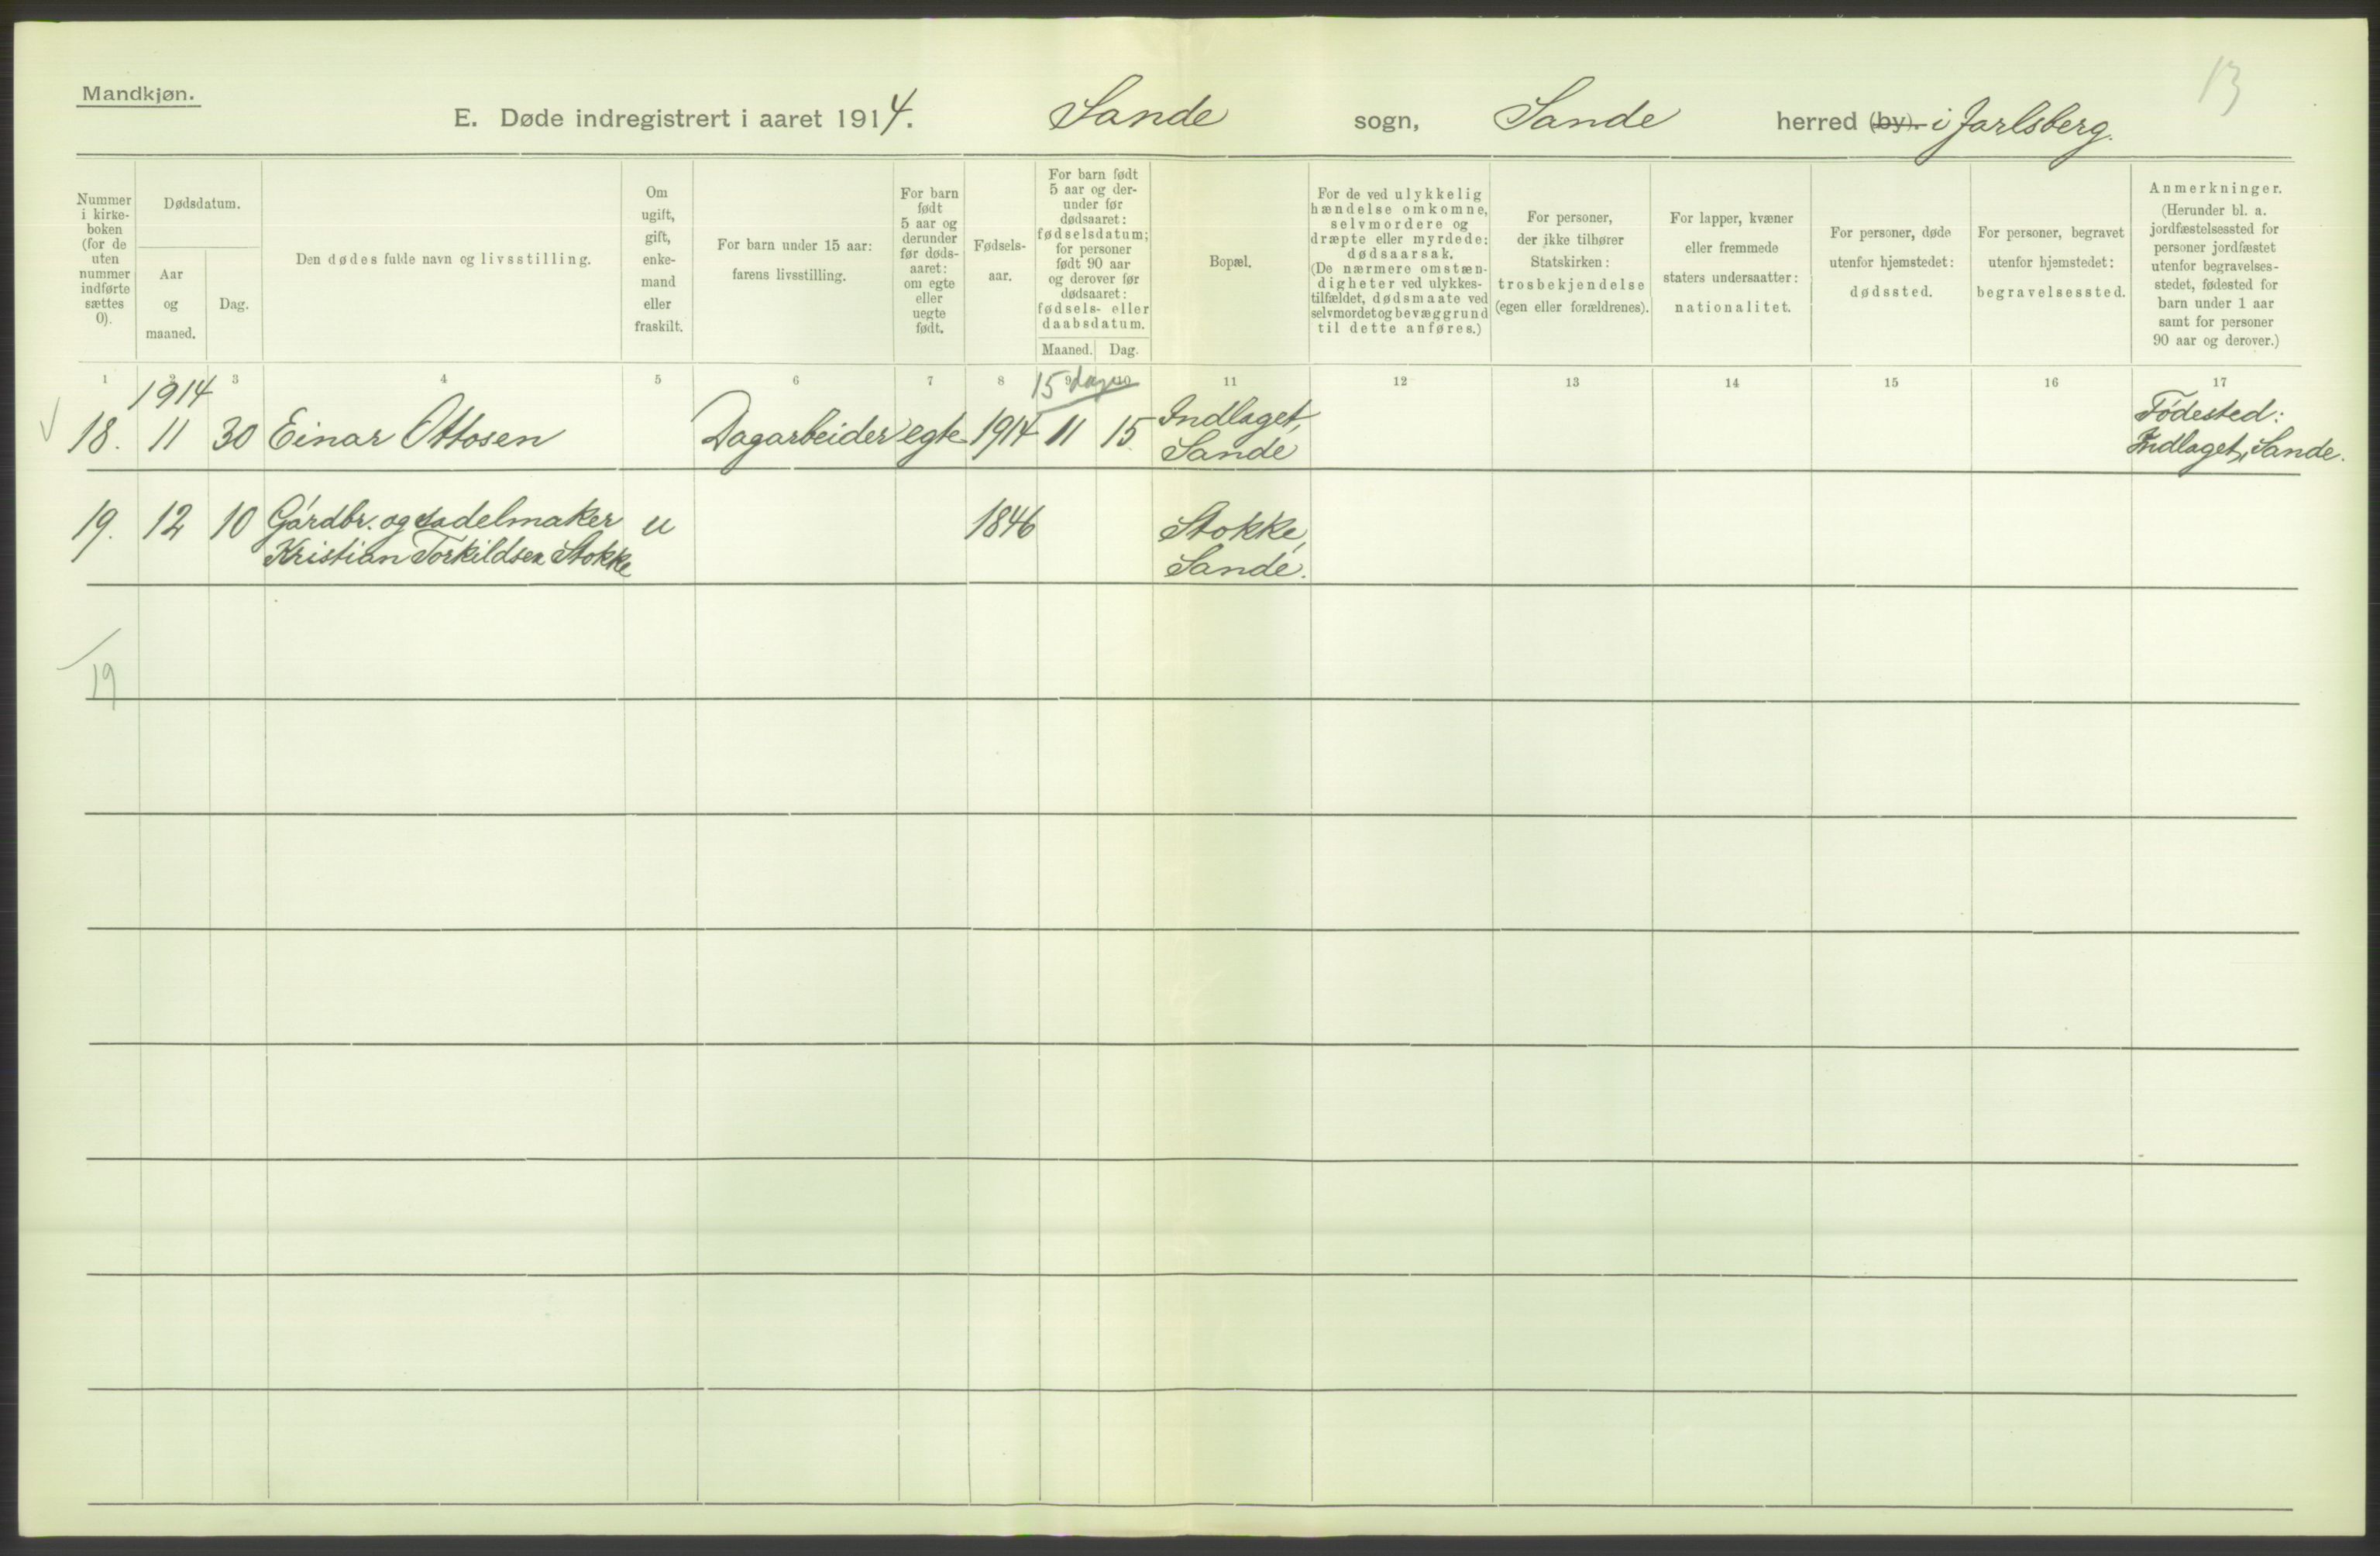 Mandkjøn.
13
E. Døde indregistrert i aaret 1914. Sande sogn, Sande herred (by). i Jarlsberg.
Nummer
i kirke-
boken
(for de
uten
nummer
indførte
sættes
0).
Dødsdatum.
Aar
og
maaned.
Dag.
Den dødes fulde navn og livsstilling.
Om
ugift,
gift,
enke-
mand
eller
fraskilt.
For barn under 15 aar:
farens livsstilling.
For barn
født
5 aar og
derunder
før døds-
aaret:
om egte
eller
uegte
født.
Fødsels-
aar.
For barn født
5 aar og der-
under før
dødsaaret:
fødselsdatum;
for personer
født 90 aar
og derover før
dødsaaret:
fødsels- eller
daabsdatum.
Maaned. Dag.
Bopæl.
For de ved ulykkelig
hændelse omkomne,
selvmordere og
dræpte eller myrdede:
dødsaarsak.
(De nærmere omstæn-
digheter ved ulykkes-
tilfældet, dødsmaate ved
selvmordet og bevæggrund
til dette anføres.)
For personer,
der ikke tilhører
Statskirken:
trosbekjendelse
(egen eller forældrenes).
For lapper, kvæner
eller fremmede
staters undersaatter:
nationalitet.
For personer, døde
utenfor hjemstedet:
dødssted.
For personer, begravet
utenfor hjemstedet:
begravelsessted.
Anmerkninger.
(Herunder bl. a.
jordfæstelsessted for
personer jordfæstet
utenfor begravelses-
stedet, fødested for
barn under 1 aar
samt for personer
90 aar og derover.)
1 2 3 4 5 6 7 8 9 10 11 12 13 14 15 16 17
1914
15 dager
18. 11 30 Einar Ottosen Dagarbeider egte 1914 11 15 Indlaget,
Sande
Fødested:
Indlaget, Sande.
19. 12 10 Gårdbr. og sadelmaker u 1846 Stokke,
Kristian Torkildsen Stokke Sande.
19